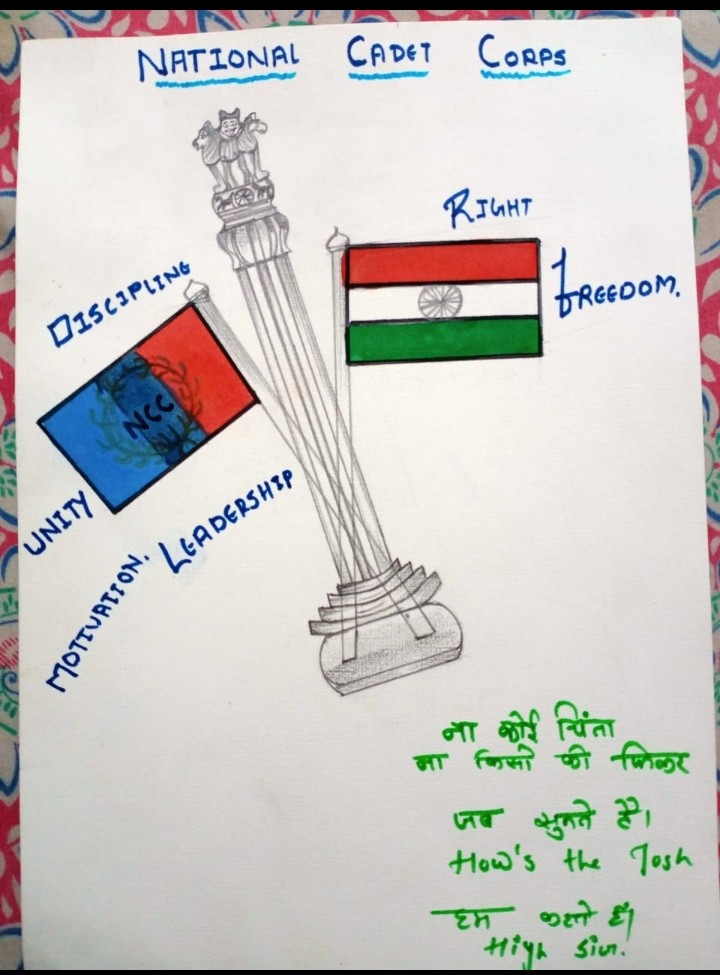 NATIONAL CADET CORPS
RIGHT
FREEDOM.
DISCIPLING
NCC
UNITY
LEADERSHIP
MOTIVATION.
ना कोई चिंता
ना किसी की फिकर
जब सुनते है।
How's the Josh
हम कहते हैं।
High Sir.